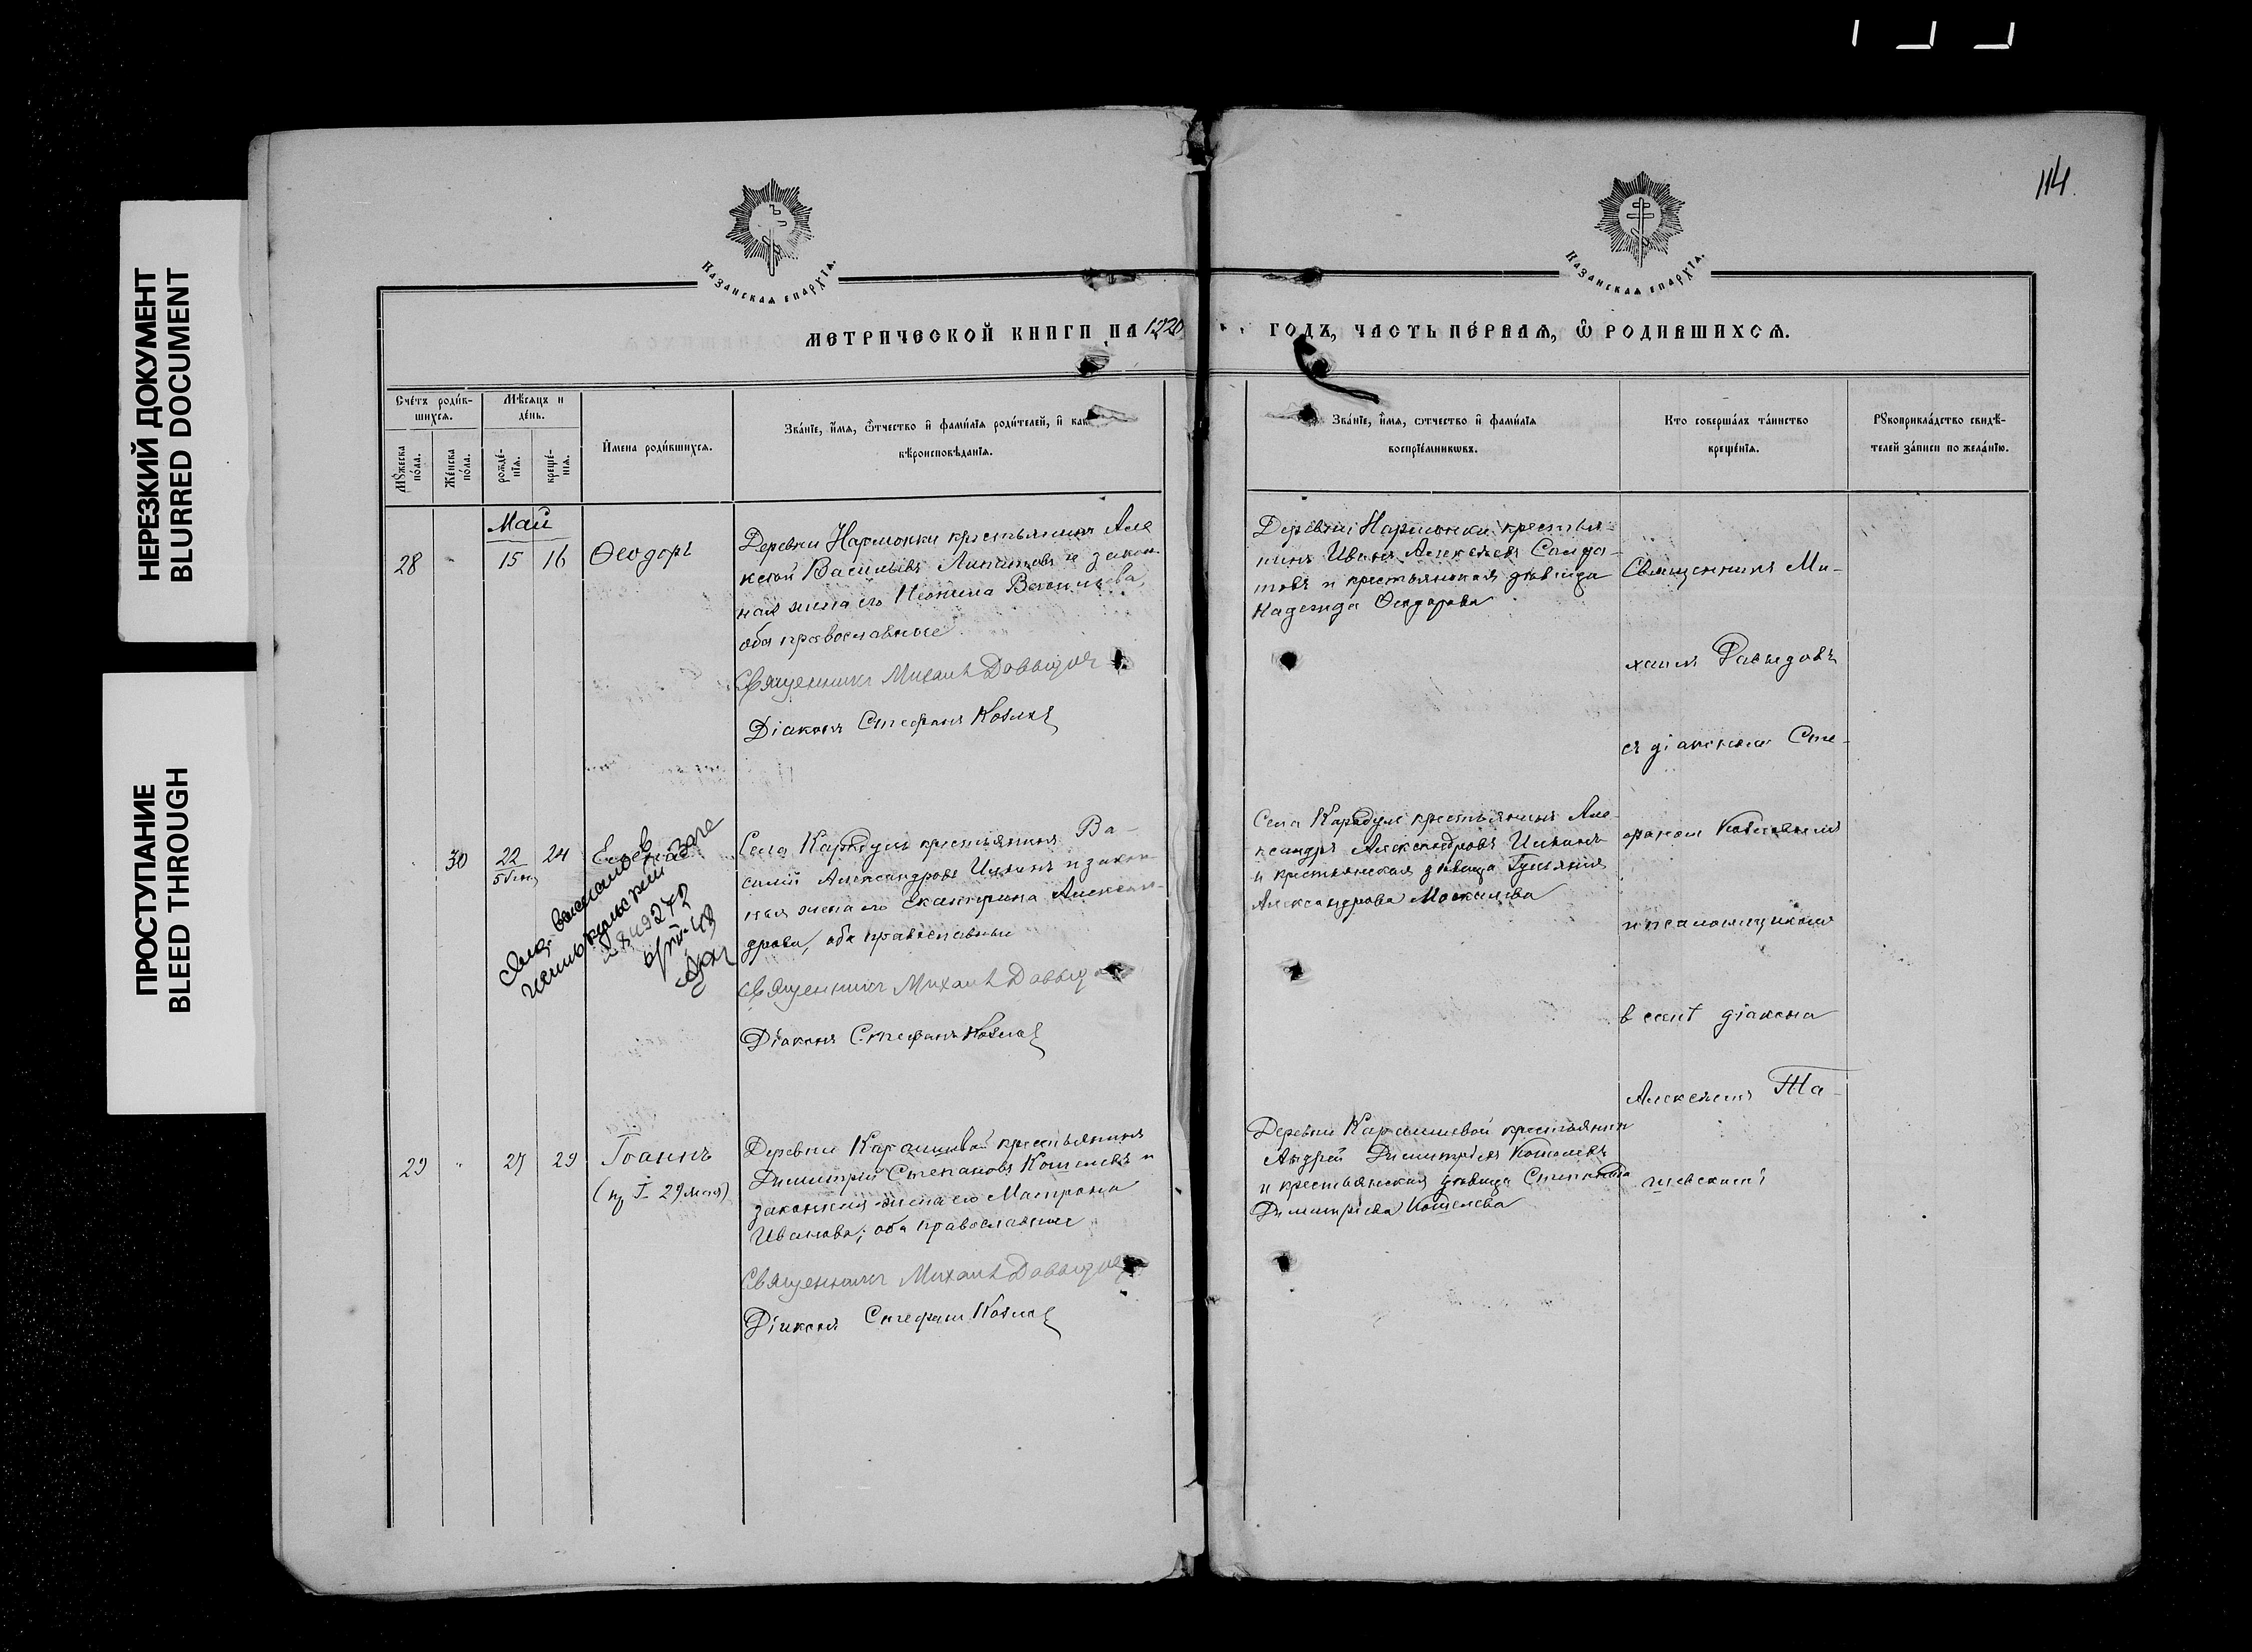 НЕРЕЗКИЙ ДОКУМЕНТ
BLURRED DOCUMENT
ПРОСТУПАНИЕ
BLEED THROUGH
114.
Казанская епархїѧ.
Казанская епархїѧ.
МЕТРИЧЕСКОЙ КНИГИ НА 1920
ГОДЪ, ЧАСТЬ ПЕ́РВАЯ, Ѽ РОДИВШИХСѦ.
Сче́тъ роди́в-
шихсѧ.
Мѣ́сѧцъ и
де́нь.
Мꙋ́жеска
по́ла.
Же́нска
по́ла.
рожде́-
нїѧ.
креще́-
нїѧ.
Имена роди́вшихсѧ.
Зва́нїе, и́мѧ, ѻ́тчество и фами́лїѧ роди́телей, и как
вѣроисповѣ́данїѧ.
Зва́нїе, и́мѧ, ѻтчество и фами́лїѧ
воспрїе́мникѡвъ.
Кто соверша́лъ та́инство
креще́нїѧ.
Рꙋкоприкла́дство свидѣ́-
телей за́писи по жела́нїю.
Май
28 " 15 16 Ѳеодоръ
Деревни Нармонки крестьянинъ Але
ксѣй Васильевъ Липатовъ и закон
ная жена его Неонила Васильева,
оба православные
Священникъ Михаилъ Давыдов
Дiаконъ Стефанъ Козлов
Деревни Нармонки крестья-
нинъ Иванъ Алексѣевъ Солда-
товъ и крестьянская дѣвица
Надежда Ѳеодорова
Священникъ Ми-
хаилъ Давыдовъ
съ дiакономъ Сте-
фаномъ Козловымъ
и псаломщикомъ
в санѣ дiакона
Алексѣемъ
30 22 24 Елена
Села Карадули крестьянинъ Ва-
силiй Александровъ Илькинъ и закон-
ная жена его Екатерина Алексан-
дрова, оба православные
Священникъ Михаилъ Давыд
Дiаконъ Стефанъ Козлов
Села Карадули крестьянинъ Але-
ксандръ Александровъ Илькинъ
и крестьянская дѣвица
Александрова Москалева
29 " 27 29 Iоаннъ
Деревни Карашевой крестьянинъ
Димитрiй Степановъ Кошелевъ и
законная жена его Матрона
Иванова; оба православные
Священникъ Михаилъ Давыдов
Дiаконъ Стефанъ Козлов
Деревни Карашевой крестьянин
Андрей Димитрiевъ Кошелевъ
и крестьянская дѣвица
Димитрiева Кошелева